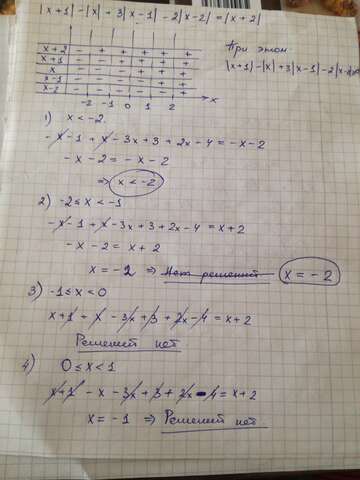 |x+1|-|x|+3|x-1|-2|x-2|=|x+2|
При этом
|x+1|-|x|+3|x-1|-2|x-2|
x+2 - + + + + +
x+1 - - + + + +
x - - - + + +
x-1 - - - - + +
x-2 - - - - - +
-2 -1 0 1 2 x
1) x<-2.
-x-1+x-3x+3+2x-4=-x-2
-x-2=-x-2
=> x<-2
2) -2≤x<-1
-x-1+x-3x+3+2x-4=x+2
-x-2=x+2
x=-2 => Нет решений x=-2
3) -1≤x<0
x+1+x-3x+3+2x-4=x+2
Решений нет
4) 0≤x<1
x+1-x-3x+3+2x-4=x+2
x=-1 => Решений нет